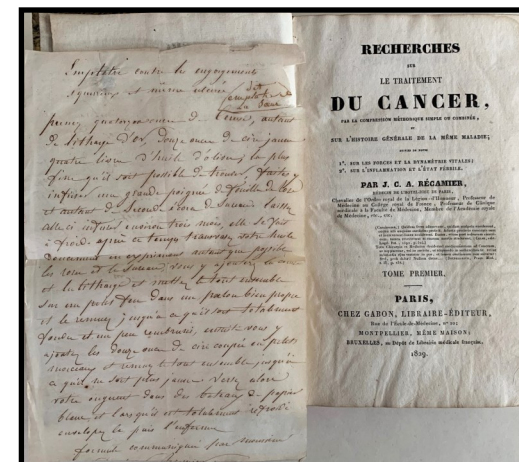 Emplatre contre les engorgements
squirreux et même ulcéré dit
emplatre de
la Sœur
prenez quatorze once de Ceruse, autant
de litharge d'or, douze once de cire jaune
quatre livres d'huile d'olives, la plus
fine qu'il soit possible de trouver, faites y
infuser une grande poignée de feuille de
et autant de Laissez
celle ci infuser environ trois mois, elle se fait
à froid. après ce temps transvasez votre huile
doucement en exprimant autant que possible
les roses et le vous y ajoutez le
et la litharge et mettez le tout ensemble
sur un petit feu dans un poelon bien propre
et le remuez jusqu'à ce qu'il soit totalement
fondu et un peu rembruni, ensuite vous y
ajoutez les douze once de cire coupée en petits
morceaux et remuez le tout ensemble jusqu'à
ce qu'il ne soit plus jaune. Versez alors
votre onguent dans des bateaux de papier
blanc et lorsqu'il est totalement refroidi
enveloppez le puis l'enfermez
formule communiquée par monsieur
RECHERCHES
SUR
LE TRAITEMENT
DU CANCER,
PAR LA COMPRESSION MÉTHODIQUE SIMPLE OU COMBINÉE,
ET
SUR L'HISTOIRE GÉNÉRALE DE LA MÊME MALADIE;
SUIVIES DE NOTES
1°. SUR LES FORCES ET LA DYNAMÉTRIE VITALES;
2°. SUR L'INFLAMMATION ET L'ÉTAT FÉBRILE.
PAR J. C. A. RÉCAMIER,
MÉDECIN DE L'HÔTEL-DIEU DE PARIS,
Chevalier de l'Ordre royal de la Légion-d'Honneur, Professeur de
Médecine au Collège royal de France, Professeur de Clinique
médicale à la Faculté de Médecine, Membre de l'Académie royale
de Médecine, etc., etc.
TOME PREMIER.
PARIS,
CHEZ GABON, LIBRAIRE-ÉDITEUR,
Rue de l'École-de-Médecine, n° 10;
MONTPELLIER, MÊME MAISON;
BRUXELLES, au Dépôt de librairie médicale française.
1829.